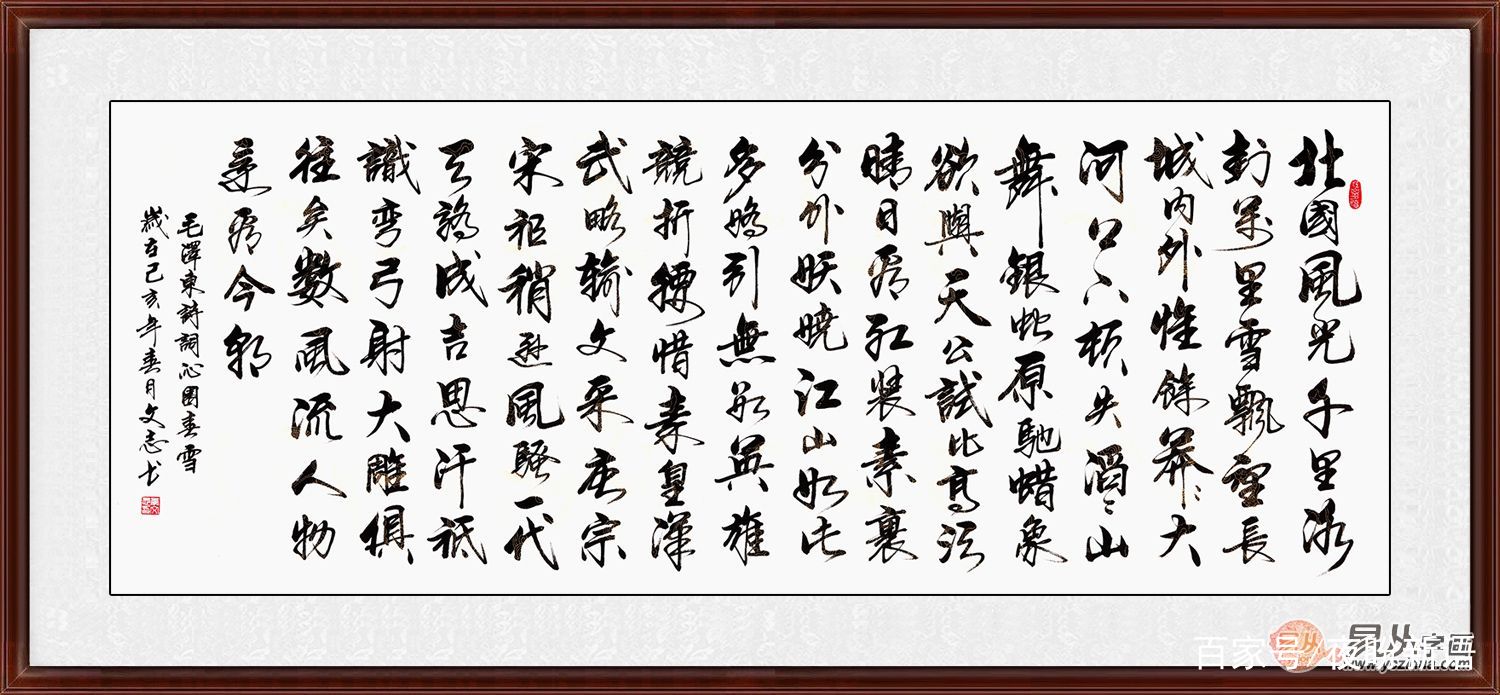 北國風光千里冰
封萬里雪飄望長
城内外惟餘莽々大
河上下頓失滔々山
舞銀蛇原馳蜡象
欲與天公試比高須
晴日看紅裝素裹
分外妖嬈江山如此
多嬌引無數英雄
競折腰惜秦皇漢
武略輸文采唐宗
宋祖稍遜風騷一代
天驕成吉思汗祗
識彎弓射大雕俱
往矣數風流人物
還看今朝
毛澤東詩詞沁園春雪
歲在己亥年春月文志书
百家号/
易从字画
www.yczihua.com